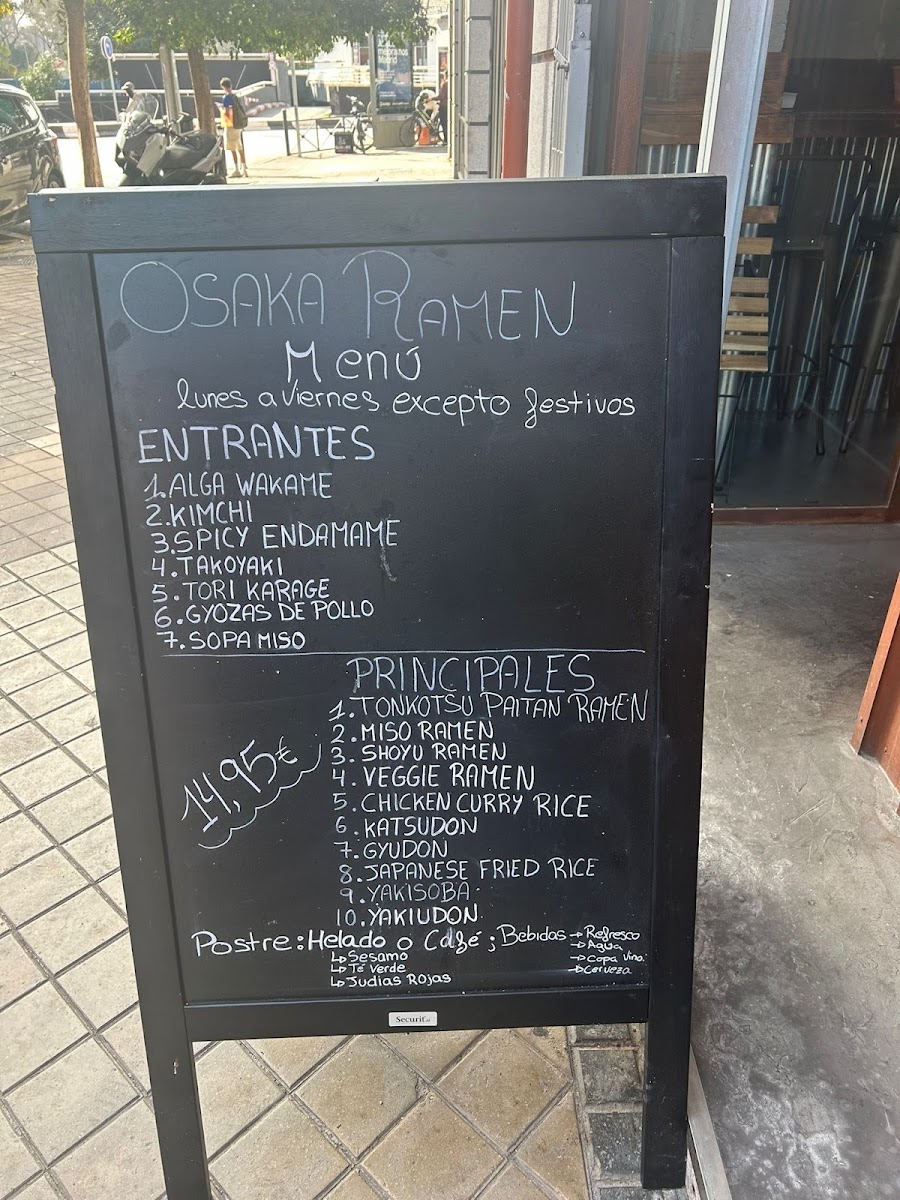 OSAKA RAMEN
Menú
lunes a viernes excepto festivos
ENTRANTES
1. ALGA WAKAME
2. KIMCHI
3. SPICY ENDAMAME
4. TAKOYAKI
5. TORI KARAGE
6. GYOZAS DE POLLO
7. SOPA MISO
PRINCIPALES
1. TONKOTSU PAITAN RAMEN
2. MISO RAMEN
3. SHOYU RAMEN
4. VEGGIE RAMEN
5. CHICKEN CURRY RICE
6. KATSUDON
7. GYUDON
8. JAPANESE FRIED RICE
9. YAKISOBA
10. YAKIUDON
14,95€
Postre: Helado o Café; Bebidas → Refresco
→ Agua
→ Copa Vino
→ Cerveza
↳ Sesamo
↳ Té Verde
↳ Judias Rojas
Securit